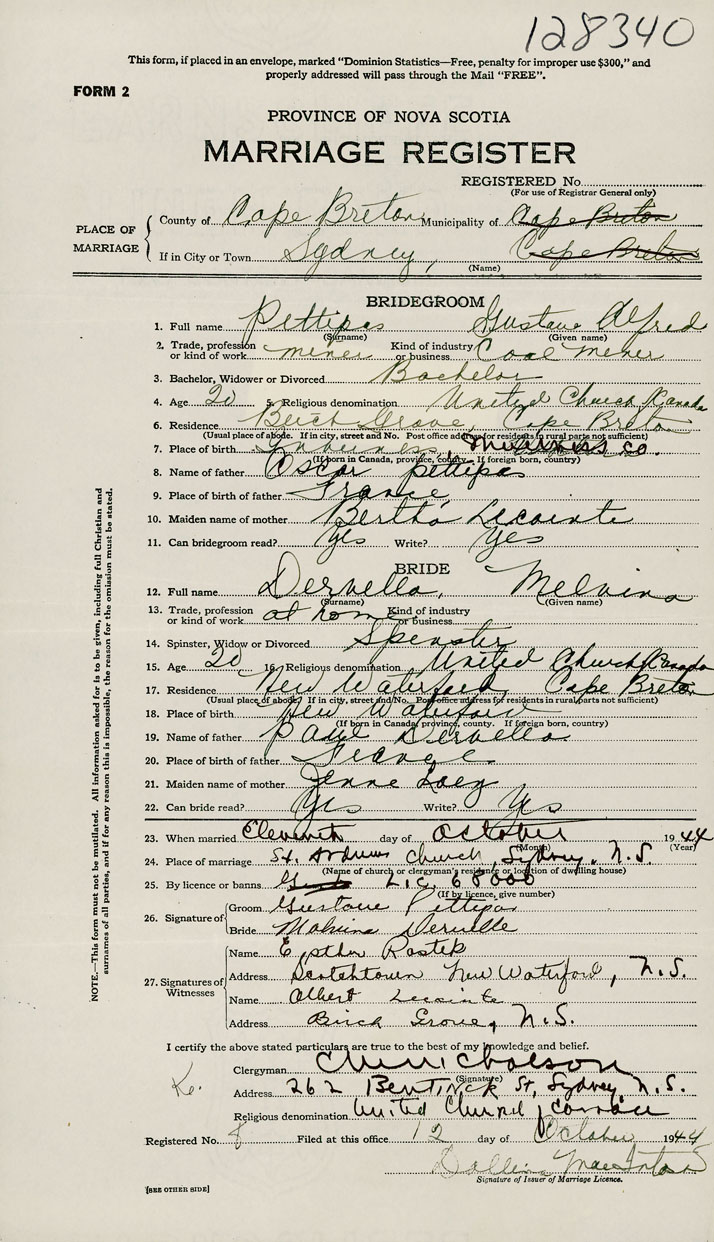 128340
This form, if placed in an envelope, marked "Dominion Statistics—Free, penalty for improper use $300," and
properly addressed will pass through the Mail "FREE".
FORM 2
PROVINCE OF NOVA SCOTIA
MARRIAGE REGISTER
REGISTERED No.
(For use of Registrar General only)
PLACE OF MARRIAGE
County of Cape Breton Municipality of Cape Breton
If in City or Town Sydney, Cape Breton
(Name)
BRIDEGROOM
1. Full name Pettipas Gustave Alfred
(Surname) (Given name)
2. Trade, profession or kind of work miner Kind of industry or business Coal Miner
3. Bachelor, Widower or Divorced Bachelor
4. Age 20 5. Religious denomination United Church Canada
6. Residence Birch Grove, Cape Breton
(Usual place of abode. If in city, street and No. Post office address for residents in rural parts not sufficient)
7. Place of birth Inverness, Inverness Co.
(If born in Canada, province, county. If foreign born, country)
8. Name of father Oscar Pettipas
9. Place of birth of father France
10. Maiden name of mother Bertha Lecointe
11. Can bridegroom read? Yes Write? Yes
BRIDE
12. Full name Dervella, Melvina
(Surname) (Given name)
13. Trade, profession or kind of work at home Kind of industry or business
14. Spinster, Widow or Divorced Spinster
15. Age 20 16. Religious denomination United Church Canada
17. Residence New Waterford, Cape Breton
(Usual place of abode? If in city, street and No. Post office address for residents in rural parts not sufficient)
18. Place of birth New Waterford
(If born in Canada, province, county. If foreign born, country)
19. Name of father Paul Dervella
20. Place of birth of father France
21. Maiden name of mother Jenne
22. Can bride read? Yes Write? Yes
23. When married Eleventh day of October 1944
(Month) (Year)
24. Place of marriage St. Andrews Church, Sydney, N.S.
(Name of church or clergyman's residence or location of dwelling house)
25. By licence or banns Lic. 68000
(If by licence, give number)
26. Signature of
Groom Gustave Pettipas
Bride Malvina Dervelle
27. Signatures of Witnesses
Name Esther Rostek
Address Scotchtown New Waterford, N.S.
Name Albert Lecointe
Address Birch Grove, N.S.
I certify the above stated particulars are true to the best of my knowledge and belief.
Clergyman
(Signature)
Ko.
Address 262 Bentinck St, Sydney N.S.
Religious denomination United Church Canada
Registered No. 8 Filed at this office 12 day of October 1944
MacIntosh
Signature of Issuer of Marriage Licence.
[SEE OTHER SIDE]
NOTE.—This form must not be mutilated. All information asked for is to be given, including full Christian and
surnames of all parties, and if for any reason this is impossible, the reason for the omission must be stated.